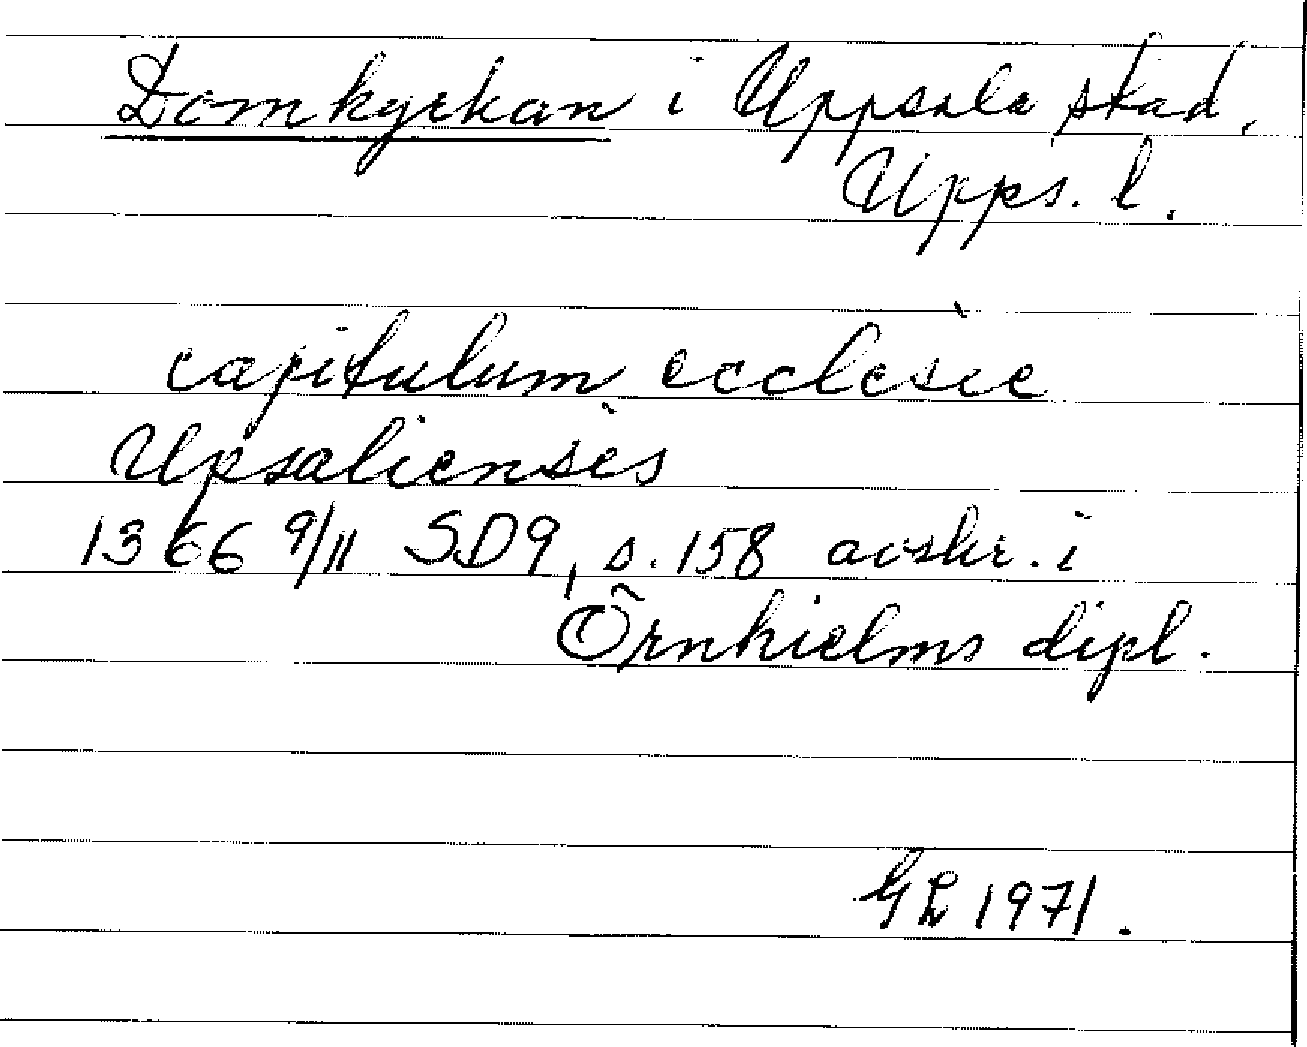 Domkyrkan i Uppsala stad,
Upps. l.
capitulum ecclesie
Upsaliensis
1366 9/11 SD9, s. 158 avskr. i
Örnhielms dipl.
GL 1971.